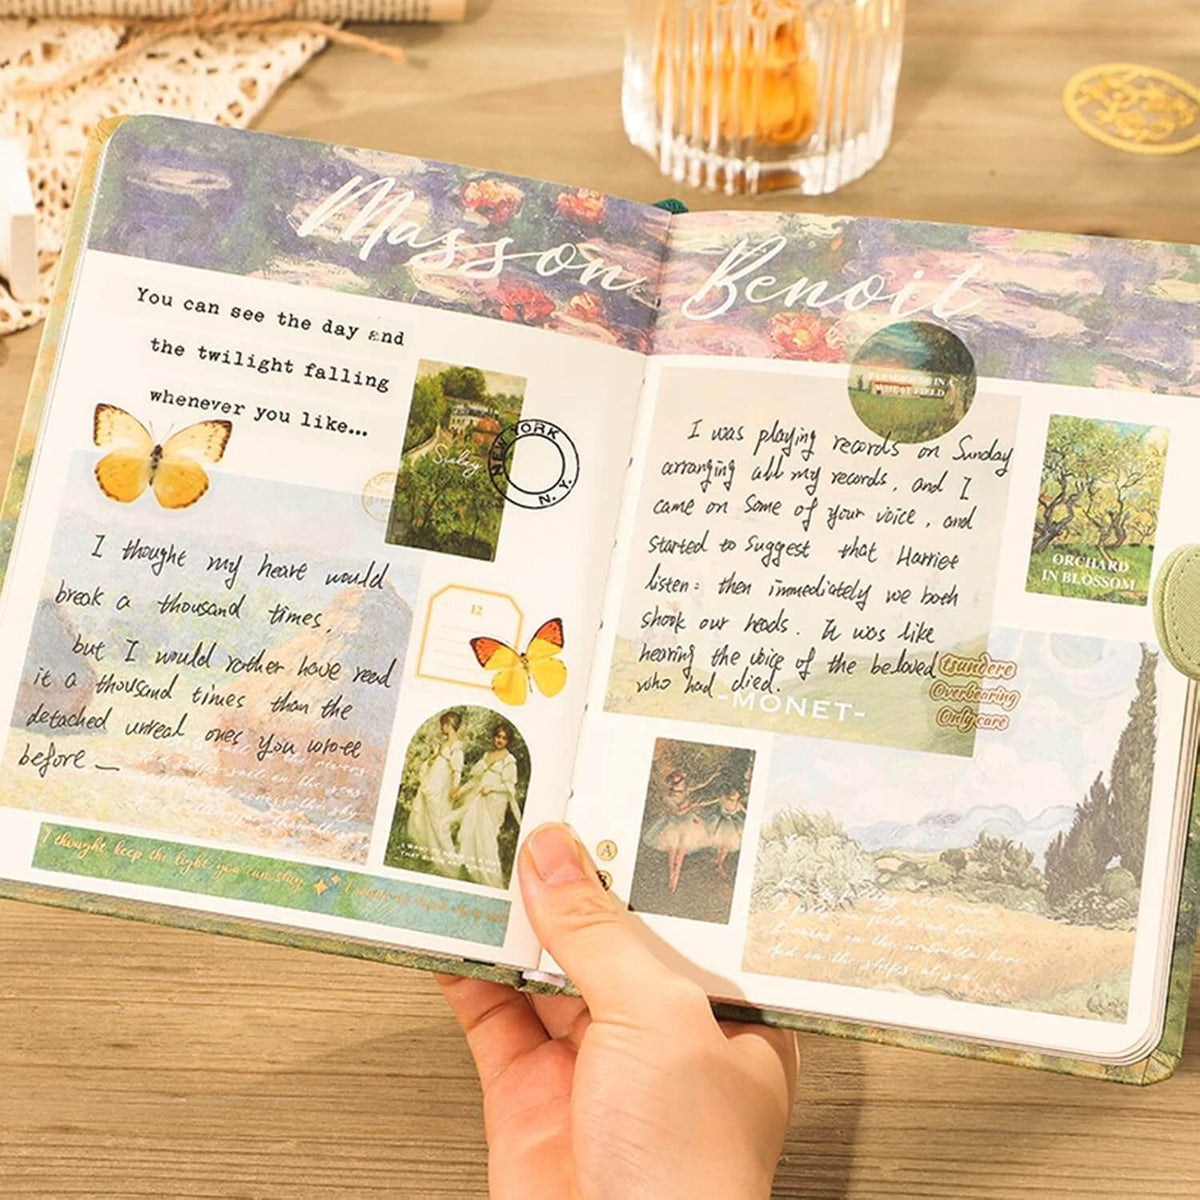 Masson Benoit
You can see the day and
the twilight falling
whenever you like...
NEW YORK
N. Y.
12
I thought my heare would
break a thousand times,
but I would rother have read
it a thousand times than the
detached unreal ones you wrote
before —
I thought, keep the light, you can stay
FARMHOUSE IN A
WHEAT FIELD
I was playing records on Sunday
arranging all my records, and I
came on some of your voice, and
started to suggest that Harriet
listen: then immediately we both
shook our heads. It was like
hearing the voice of the beloved
who had died.
-MONET-
tsundere
Overbearing
Only care
ORCHARD
IN BLOSSOM
A